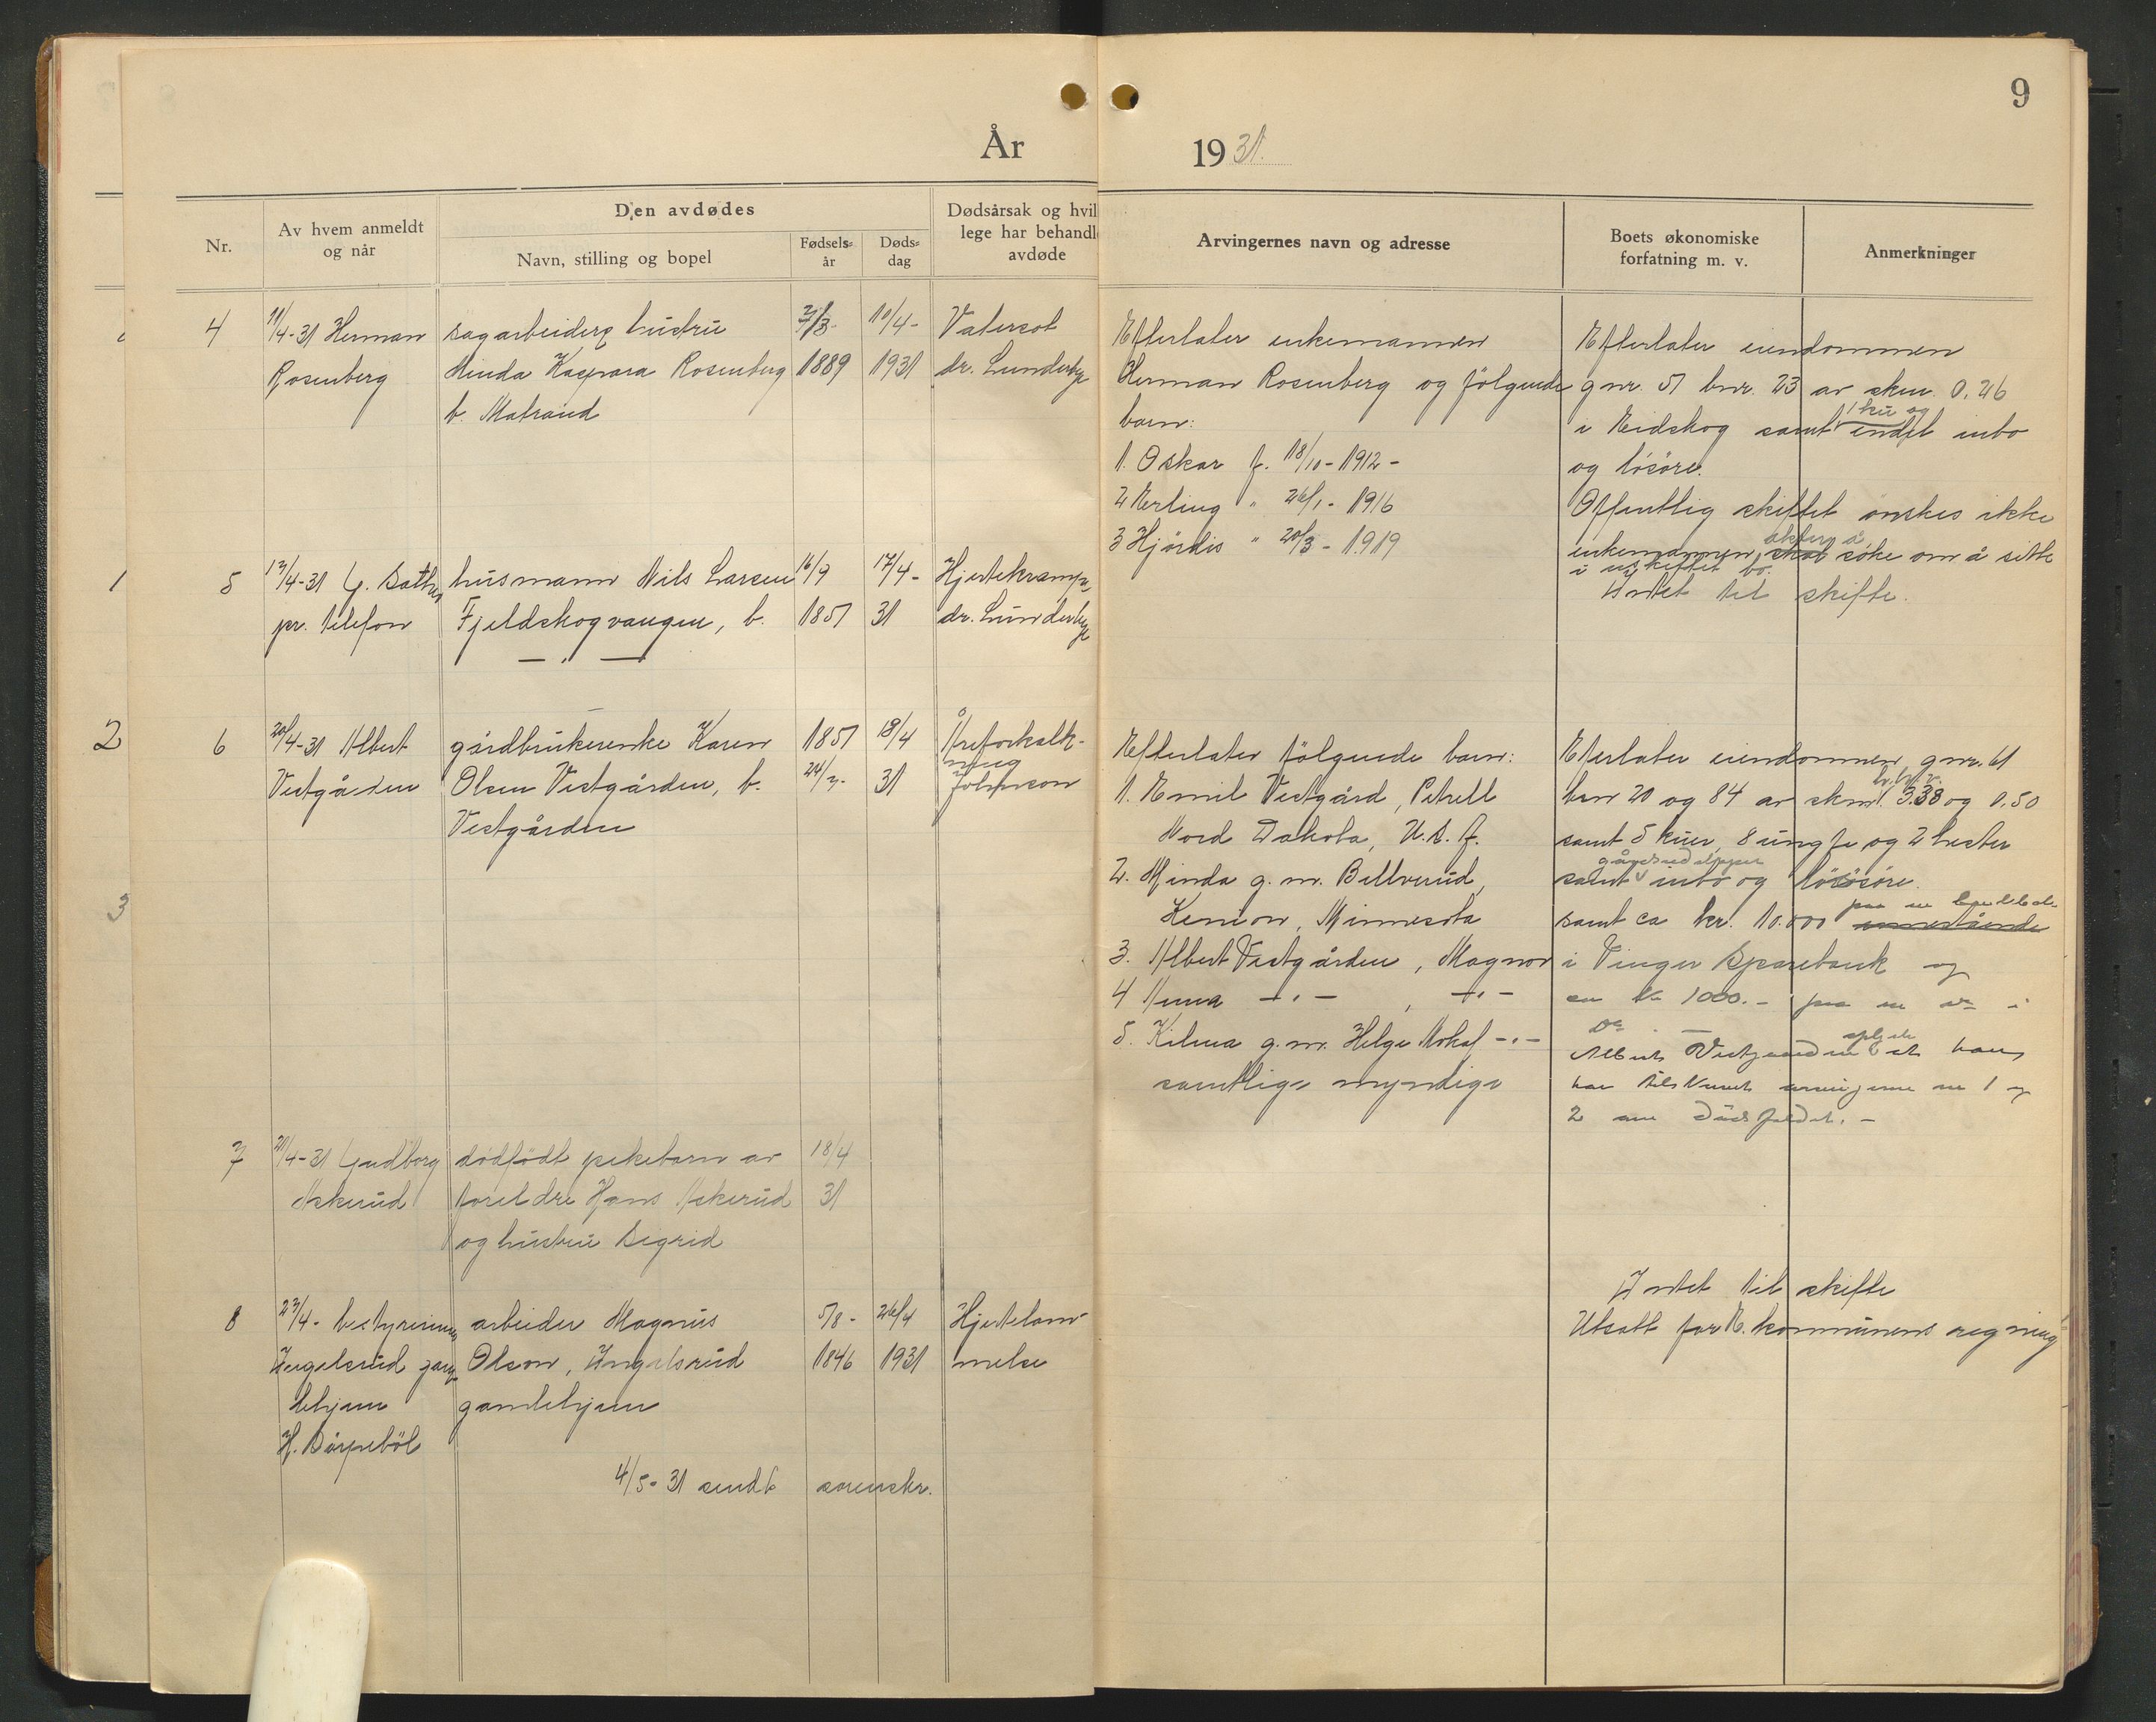 9
År
1931.
Nr.
Av hvem anmeldt
og når
Den avdødes
Navn, stilling og bopel
Fødsels-
år
Døds-
dag
Dødsårsak og hvil
lege har behandl
avdøde
Arvingernes navn og adresse
Boets økonomiske
forfatning m. v.
Anmerkninger
4
11/4-31 Herman
Rosenberg
sagarbeider hustru
Minda Kaspara Rosenberg
b. Matrand
1889
10/4-
1931
Vatersot
dr. Lunderbye
Efterlater enkemannen
Herman Rosenberg og følgende
barn:
1. Oskar f. 18/10-1912-
2 Erling " 26/1-1916
3 Hjördis " 20/3-1919
Efterlater eiendommen
gnr. 51 bnr. 23 av skm. 0,26
1 ku og
i Eidskog samt endel inbo
og lösöre.
Offentlig skiftet önskes ikke
akter å
enkemannen skal söke om å sitte
i uskiftet bo.
1
5
17/4-31
pr. telefon
husmann Nils Larsen
Fjeldskogvangen, b.
— " —
16/9
1851
17/4-
31
Hjertekrampe
dr. Lunderbye
Intet til skifte.
2
6
20/4-31 Albert
Vestgården
gårdbrukerenke Karen
Olsen Vestgården, b.
Vestgården
1851
18/4
31
Åreforkalk-
ning
Johnson
Efterlater fölgende barn:
1. Emil Vestgård, Petrell
Nord Dakota, U.S.A.
2. Minda g. m. Bellverud,
Kenion, Minnesota
3. Albert Vestgården, Magnor
4 Anna —"— , —"—
5. Kilma g. m. Helge —"—
samtlige myndige
Efterlater eiendommen, gnr. 61
bnr 20 og 84 av skm. 3.38 og 0,50
samt 5 kuer, 8 ungfe og 2 hester
gårdsredskaper
samt inbo og lösöre.
samt ca kr. 10.000 innestående
i Vinger Sparebank og
ca kr 1000.-
Do
Albert Vestgaarden oplyste at han
har tilskrevet arvingerne nr 1 og
2 om dödsfaldet. -
3
7
20/4-31 Gudborg
Åskerud
dödfödt pikebarn av
foreldre Hans Åskerud
og hustru Sigrid
18/4
31
8
27/4- bestyrerinnen
Ingelsrud gam-
lehjem
H. Børseböl
arbeider Magnus
Olson, Ingelsrud
gamlehjem
5/8-
1846
26/4
1931
Hjertelam-
melse
Intet til skifte
Utsatt for E. kommunens regning
4/5-31 sendt sorenskr.